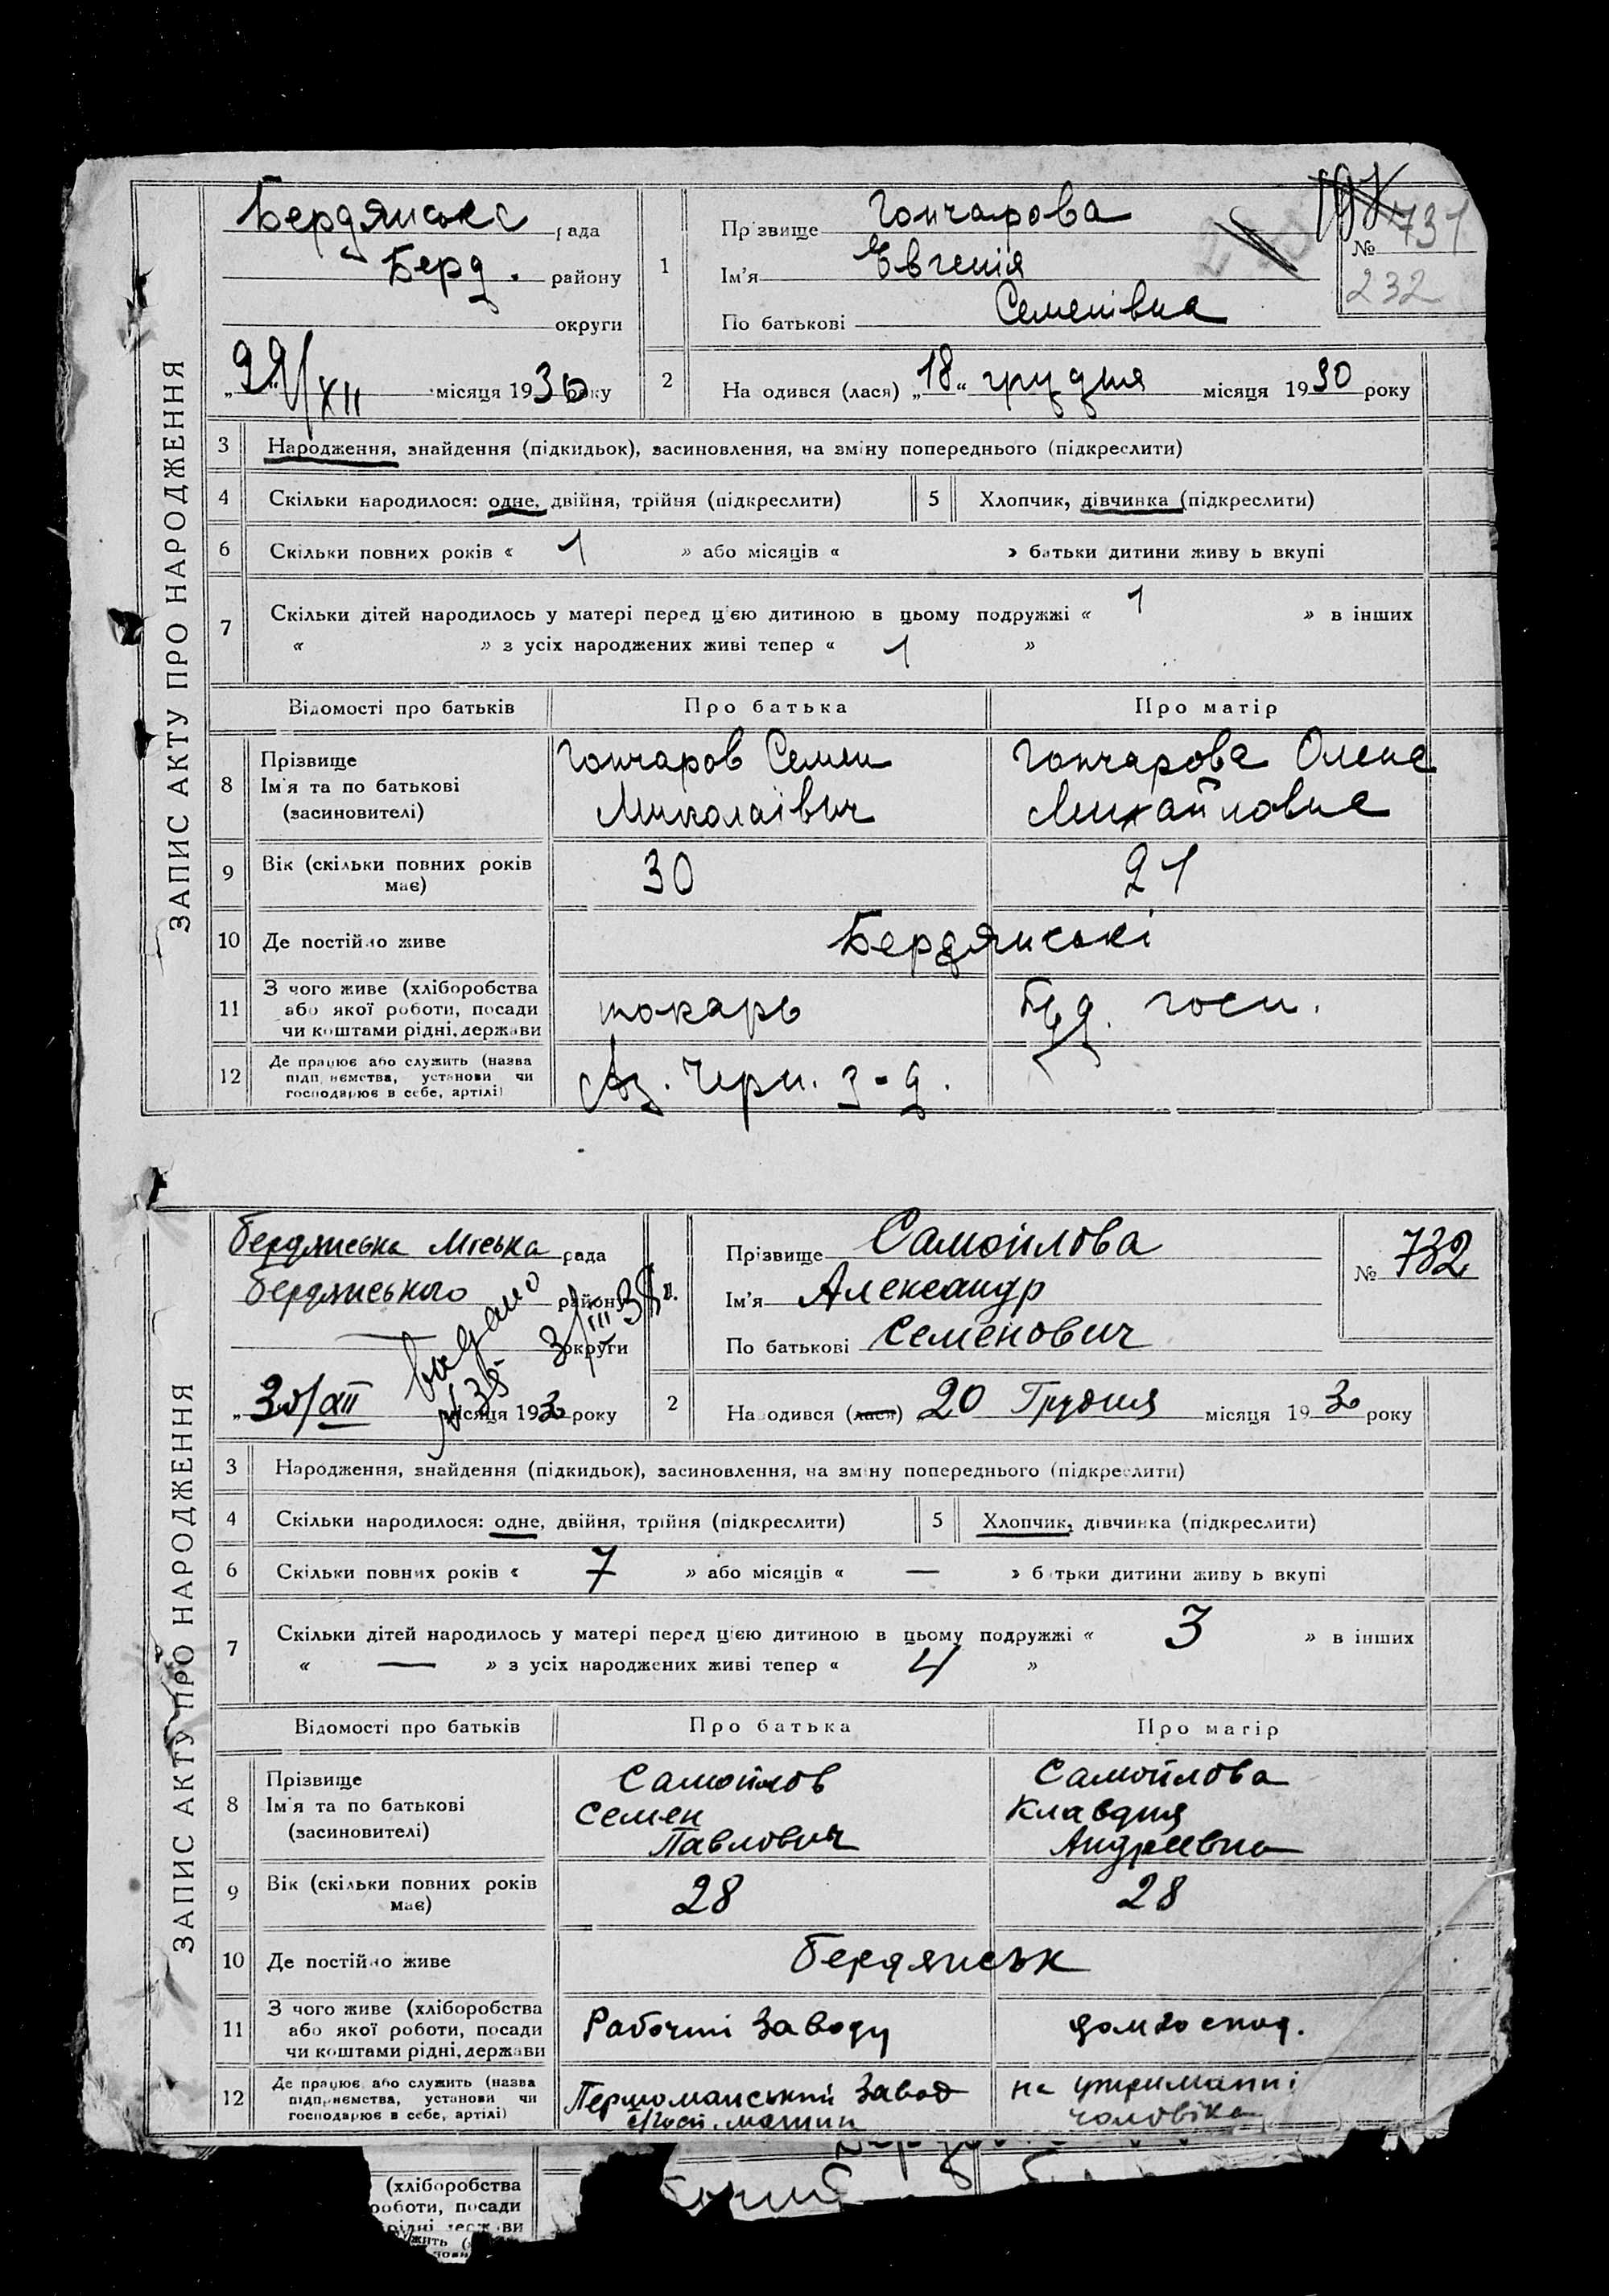 ЗАПИС АКТУ ПРО НАРОДЖЕННЯ
Бердянська рада
Берд. району
округи
29/XII місяця 1930 року
1
Прізвище Гончарова
Ім'я Євгенія
По батькові Семенівна
№ 731
232
2 На одився (лася) „18“ грудня місяця 1930 року
3 Народження, знайдення (підкидьок), засиновлення, на зміну попереднього (підкреслити)
4 Скільки народилося: одне, двійня, трійня (підкреслити) 5 Хлопчик, дівчинка (підкреслити)
6 Скільки повних років « 1 » або місяців « » батьки дитини живу ь вкупі
7 Скільки дітей народилось у матері перед цією дитиною в цьому подружжі « 1 » в інших
« » з усіх народжених живі тепер « 1 »
Відомості про батьків Про батька Про матір
8 Прізвище Ім'я та по батькові (засиновителі)
Гончаров Семен Миколаївич
Гончарова Олена Михайловна
9 Вік (скільки повних років має) 30 21
10 Де постійно живе Бердянські
11 З чого живе (хліборобства або якої роботи, посади чи коштами рідні, держави
токарь
госп.
12 Де працює або служить (назва підприємства, установи чи господарює в себе, артілі)
Аз. Черн. з-д.
ЗАПИС АКТУ ПРО НАРОДЖЕННЯ
Бердянська Міська рада
Бердянського району
округи
видано
30/XII місяця 1930 року
Прізвище Самойлова
Ім'я Александр
По батькові Семенович
№ 732
2 На одився (лася) 20 Грудня місяця 1930 року
3 Народження, знайдення (підкидьок), засиновлення, на зміну попереднього (підкреслити)
4 Скільки народилося: одне, двійня, трійня (підкреслити) 5 Хлопчик, дівчинка (підкреслити)
6 Скільки повних років « 7 » або місяців « — » батьки дитини живу ь вкупі
7 Скільки дітей народилось у матері перед цією дитиною в цьому подружжі « 3 » в інших
« — » з усіх народжених живі тепер « 4 »
Відомості про батьків Про батька Про матір
8 Прізвище Ім'я та по батькові (засиновителі)
Самойлов Семен Павлович
Самойлова Клавдия Андреевна
9 Вік (скільки повних років має) 28 28
10 Де постійно живе Бердянськ
11 З чого живе (хліборобства або якої роботи, посади чи коштами рідні, держави
Рабочий Заводу
домгоспод.
12 Де працює або служить (назва підприємства, установи чи господарює в себе, артілі)
Першомайський Завод с/госп. машин
на утриманні чоловіка
(хліборобства
роботи, посади
рідні, держави